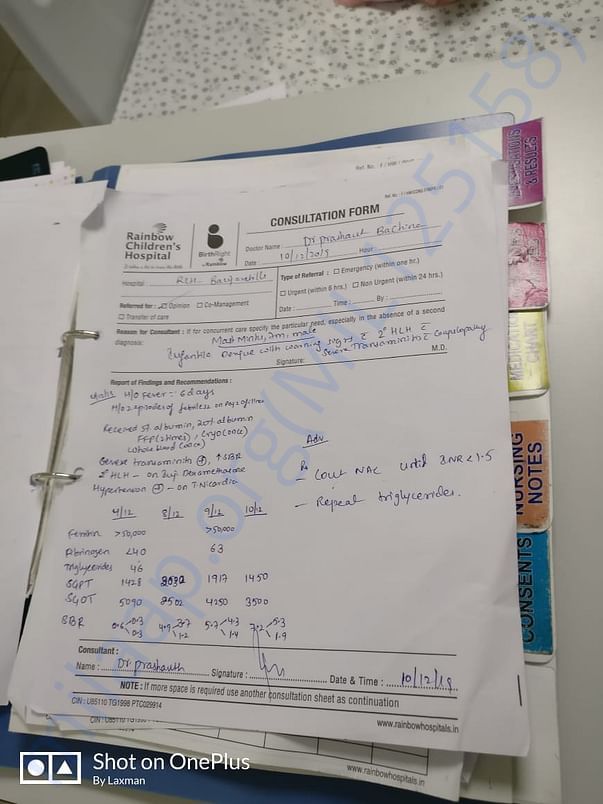 Ref. No. : F / HW /
CONSULTATION FORM
Rainbow
Children's
Hospital
BirthRight
by Rainbow
Doctor Name : Dr prashanth Bachina
Date : 10/12/2019 Hour :
Hospital RCH - Banjarahills
Type of Referral : ☐ Emergency (within one hr.)
☐ Urgent (within 6 hrs.) ☐ Non Urgent (within 24 hrs.)
Referred for : Opinion ☐ Co-Management
Date : Time : By :
☐ Transfer of care
Reason for Consultant : If for concurrent care specify the particular need, especially in the absence of a second
diagnosis:
male
Infantile Dengue with warning signs c 2° HLH c
Severe Transaminitis c Coagulopathy
Signature: M.D.
Report of Findings and Recommendations :
H/O Fever - 6 days
H/O 2 episodes of
Received 5% albumin, 20% albumin
FFP (2 times), Cryo (once)
Whole blood (once)
Severe transaminitis ⊕, ↑SBR
2° HLH - on Inj Dexamethasone
Hypertension ⊕ - on T. Nicardia
Adv
- Cont NAC until INR < 1.5
- Repeat triglycerides.
4/12 8/12 9/12 10/12
Ferritin >50,000 >50,000
Fibrinogen <40 63
Triglycerides 46
SGPT 1428 2032 1917 1450
SGOT 5090 7502 4250 3500
SBR 0.6 0.3 0.3 4.9 3.7 1.2 5.7 4.3 1.4 7.2 5.3 1.9
Consultant :
Name : Dr. prashanth Signature : Date & Time : 10/12/19
NOTE : If more space is required use another consultation sheet as continuation
CIN : U85110 TG1998 PTC029914
www.rainbowhospitals.in
www.rainbowhospitals.in
& RESULTS
MEDICATION
CHART
NURSING
NOTES
CONSENTS
Shot on OnePlus
By Laxman